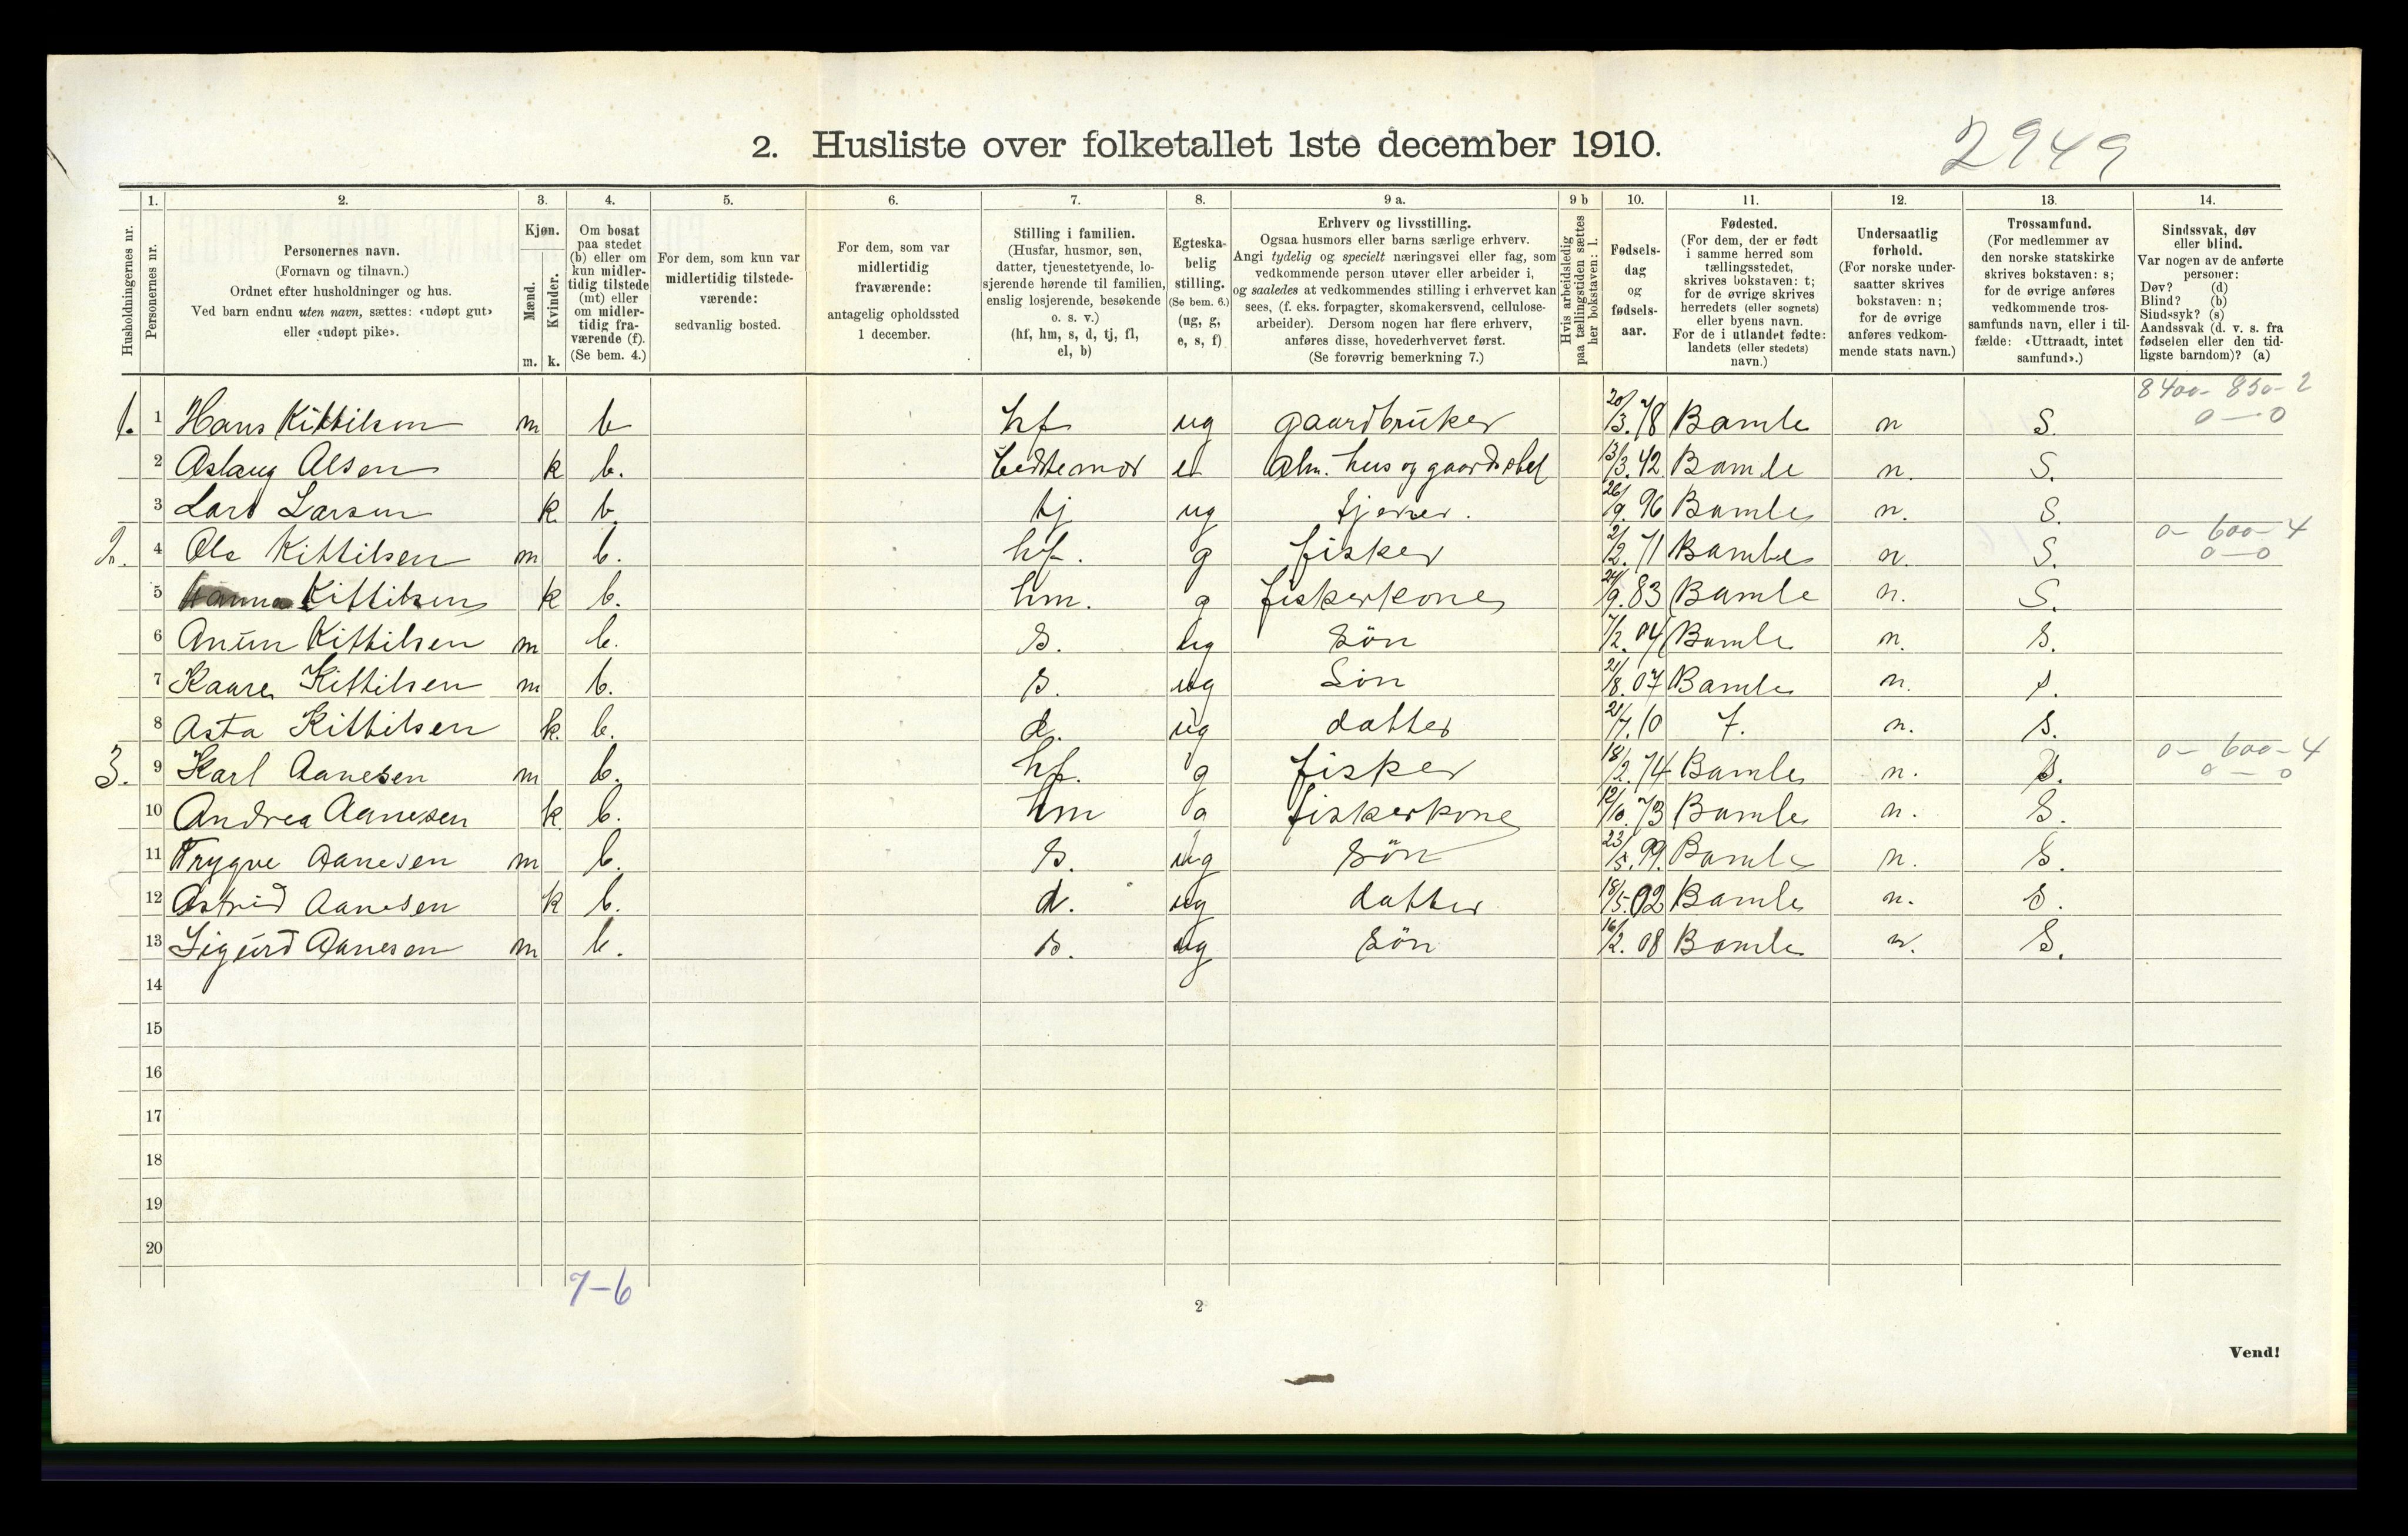 2. Husliste over folketallet 1ste december 1910.
2949
Husholdningernes nr.
1. Personernes nr.
2. Personernes navn.
(Fornavn og tilnavn.)
Ordnet efter husholdninger og hus.
Ved barn endnu uten navn, sættes: «udøpt gut»
eller «udøpt pike».
3. Kjøn.
Mænd. m.
Kvinder. k.
4. Om bosat
paa stedet
(b) eller om
kun midler-
tidig tilstede
(mt) eller
om midler-
tidig fra-
værende (f).
(Se bem. 4.)
5. For dem, som kun var
midlertidig tilstede-
værende:
sedvanlig bosted.
6. For dem, som var
midlertidig
fraværende:
antagelig opholdssted
1 december.
7. Stilling i familien.
(Husfar, husmor, søn,
datter, tjenestetyende, lo-
sjerende hørende til familien,
enslig losjerende, besøkende
o. s. v.)
(hf, hm, s, d, tj, fl,
el, b)
8. Egteska-
belig
stilling.
(Se bem. 6.)
(ug, g,
e, s, f)
9 a. Erhverv og livsstilling.
Ogsaa husmors eller barns særlige erhverv.
Angi tydelig og specielt næringsvei eller fag, som
vedkommende person utøver eller arbeider i,
og saaledes at vedkommendes stilling i erhvervet kan
sees, (f. eks. forpagter, skomakersvend, cellulose-
arbeider). Dersom nogen har flere erhverv,
anføres disse, hovederhvervet først.
(Se forøvrig bemerkning 7.)
9 b Hvis arbeidsledig
paa tællingstiden sættes
her bokstaven: l.
10. Fødsels-
dag
og
fødsels-
aar.
11. Fødested.
(For dem, der er født
i samme herred som
tællingsstedet,
skrives bokstaven: t;
for de øvrige skrives
herredets (eller sognets)
eller byens navn.
For de i utlandet fødte:
landets (eller stedets)
navn.)
12. Undersaatlig
forhold.
(For norske under-
saatter skrives
bokstaven: n;
for de øvrige
anføres vedkom-
mende stats navn.)
13. Trossamfund.
(For medlemmer av
den norske statskirke
skrives bokstaven: s;
for de øvrige anføres
vedkommende tros-
samfunds navn, eller i til-
fælde: «Uttraadt, intet
samfund».)
14. Sindssvak, døv
eller blind.
Var nogen av de anførte
personer:
Døv? (d)
Blind? (b)
Sindssyk? (s)
Aandssvak (d. v. s. fra
fødselen eller den tid-
ligste barndom)? (a)
8400-850-2
1. 1 Hans Kittilsen m b hf ug gaardbruker 20/3.78 Bamle n S. 0—0
2 Aslaug Olsen k b. bedstemor e Alm. hus og gaardsstel 13/3.42 Bamle n. S.
3 Lars Larsen k. b. tj ug tjener. 26/9.96 Bamle n. S.
0-600-4
2. 4 Ole Kittilsen m b. hf. g fisker 2/2.71 Bamble n. S. 0—0
5 Hanna Kittilsen k b. hm. g fiskerkone 24/9.83 Bamle n. S.
6 Anün Kittilsen m b. s. ug Sön 7/2.04 Bamle n. S.
7 Kaare Kittilsen m b. s. ug Sön 21/8.07 Bamle n. s.
8 Asta Kittilsen k. b. d. ug datter 21/7.10 t. n. s.
0-600-4
3. 9 Karl Aanesen m b. hf. g fisker 18/2.74 Bamle n. S. 0—0
10 Andrea Aanesen k b. hm g fiskerkone 12/10.73 Bamle n. S.
11 Trygve Aanesen m b. s. ug Sön 23/5.99. Bamle n. S.
12 Astrid Aanesen k b. d. ug datter 18/5.02 Bamle n. S.
13 Sigurd Aanesen m b. s. ug Sön 16/2.08 Bamle n. S.
14
15
16
17
18
19
20
7-6
2
Vend!